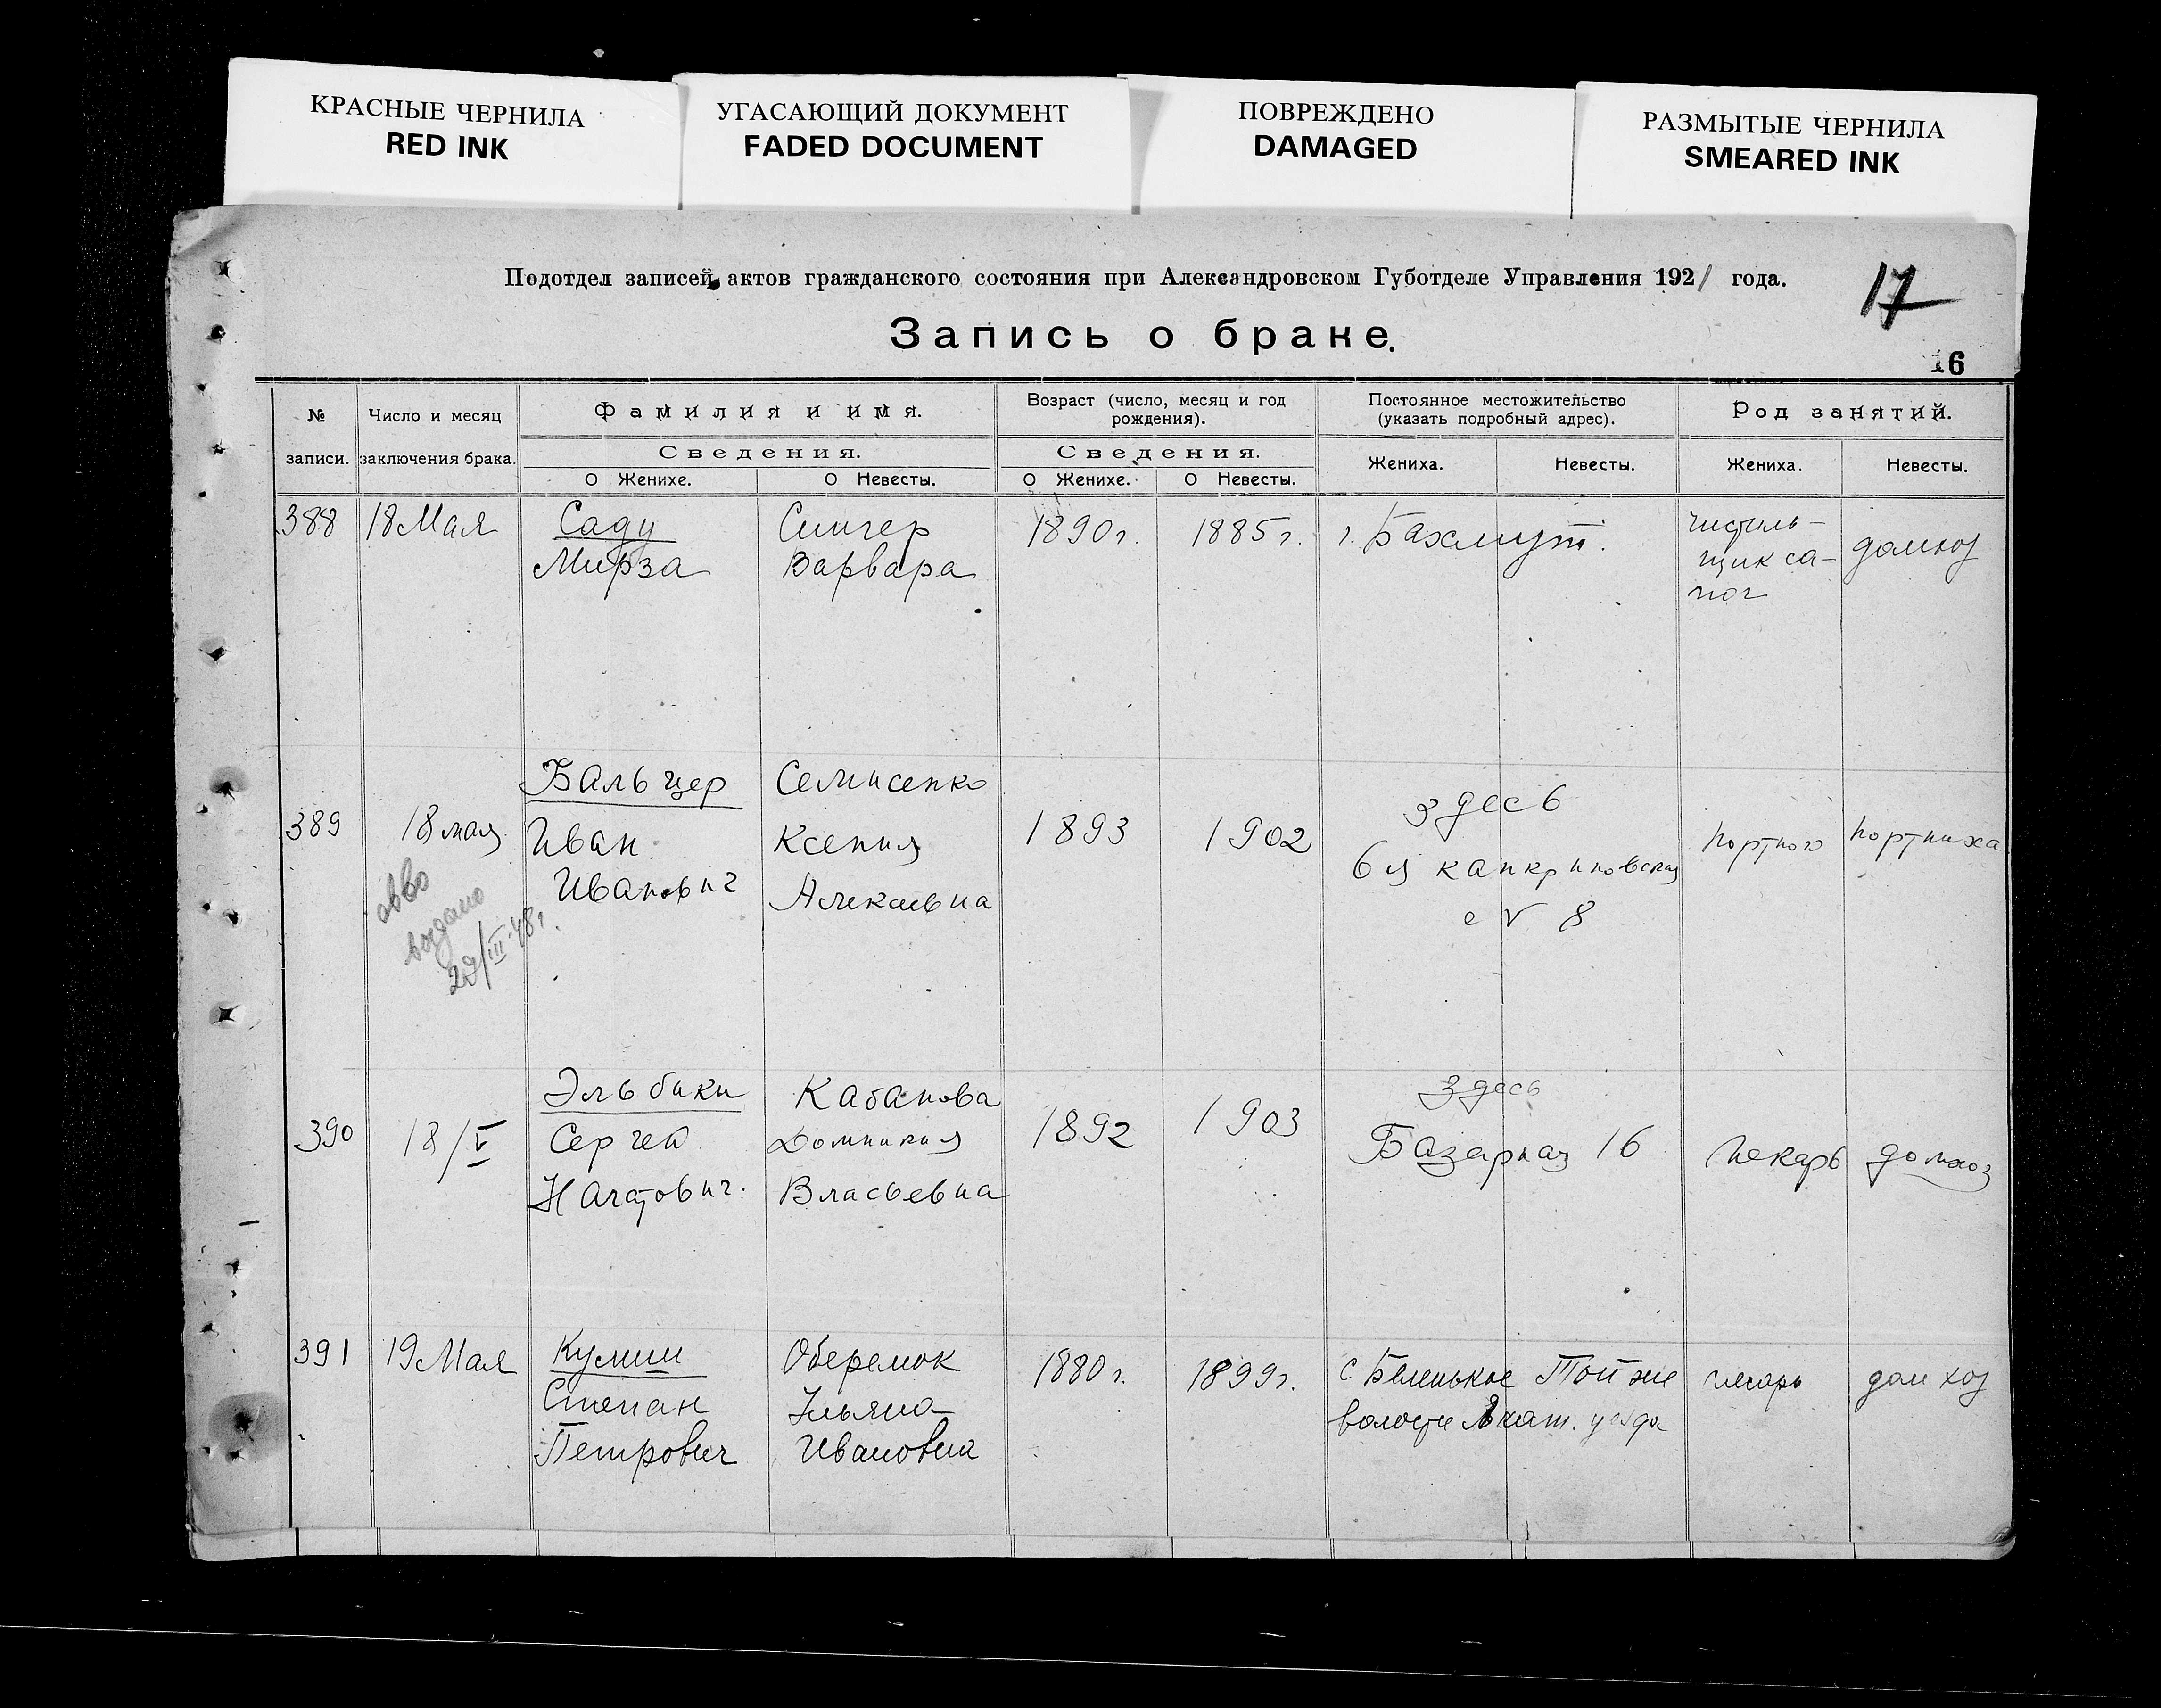 КРАСНЫЕ ЧЕРНИЛА
RED INK
УГАСАЮЩИЙ ДОКУМЕНТ
FADED DOCUMENT
ПОВРЕЖДЕНО
DAMAGED
РАЗМЫТЫЕ ЧЕРНИЛА
SMEARED INK
Подотдел записей актов гражданского состояния при Александровском Губотделе Управления 1921 года.
17
Запись о браке.
16
№ записи.
Число и месяц заключения брака.
Фамилия и имя.
Сведения.
О Женихе.
О Невесты.
Возраст (число, месяц и год рождения).
Сведения.
О Женихе.
О Невесты.
Постоянное местожительство (указать подробный адрес).
Жениха.
Невесты.
Род занятий.
Жениха.
Невесты.
388
18 Мая
Саду
Мирза
Сингер
Варвара
1890 г.
1885 г.
г. Бахмут.
чистиль-
щик са-
пог
домхоз
389
18 мая
выдано
22/III 48 г.
Бальцер
Иван
Иванович
Семисенко
Ксения
Алексеевна
1893
1902
здесь
6 я канкриновская
8
портной
портниха
390
18/V
Эльбики
Сергей
Кабанова
Домникия
Власьевна
1892
1903
здесь
Базарная 16
Пекарь
домхоз
391
19 Мая
Степан
Петрович
Оберемок
Ульяна
Ивановна
1880 г.
1899 г.
с Беленькое Той же
волости уезда
слесарь
дом хоз